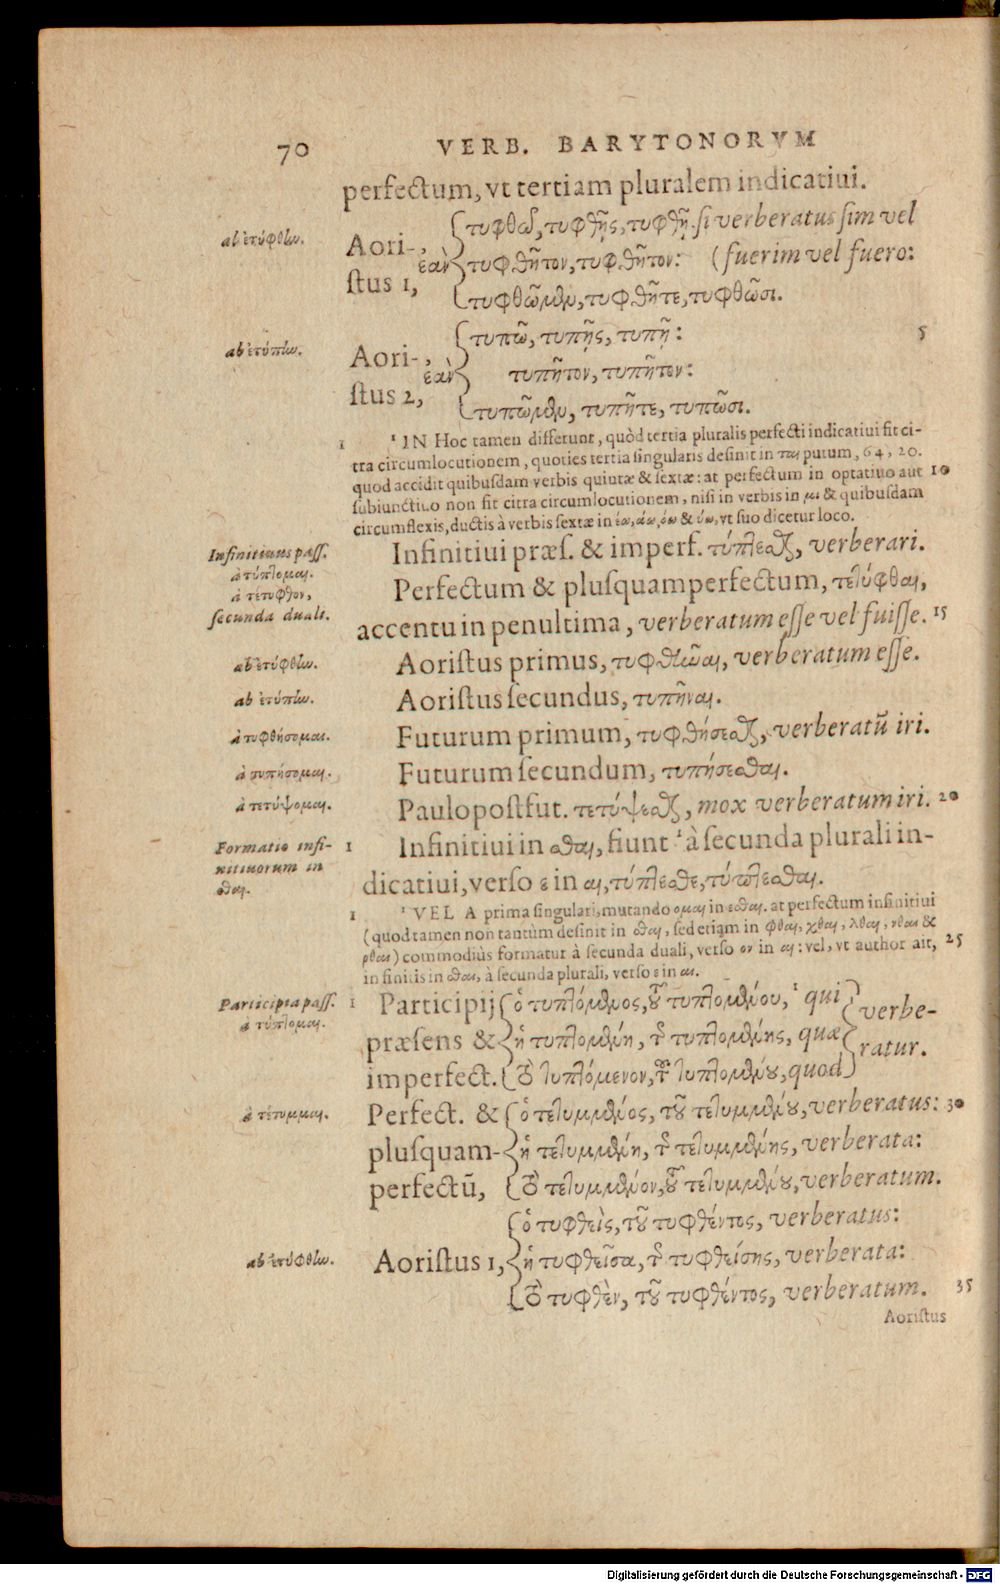 70 VERB. BARYTONORVM
perfectum, vt tertiam pluralem indicatiui.
ab ἐτύφθην.
Aori-
stus 1, ἐὰν
τυφθῶ, τυφθῇς, τυφθῇ. si verberatus sim vel
τυφθῆτον, τυφθῆτον: (fuerim vel fuero:
τυφθῶμεν, τυφθῆτε, τυφθῶσι.
ab ἐτύπην.
Aori-
stus 2, ἐὰν
τυπῶ, τυπῇς, τυπῇ: 5
τυπῆτον, τυπῆτον:
τυπῶμεν, τυπῆτε, τυπῶσι.
1 ¹ IN Hoc tamen differunt, quòd tertia pluralis perfecti indicatiui fit ci-
tra circumlocutionem, quoties tertia singularis desinit in ται purum, 64, 20.
quod accidit quibusdam verbis quiutæ & sextæ: at perfectum in optatiuo aut 10
subiunctiuo non fit citra circumlocutionem, nisi in verbis in μι & quibusdam
circumflexis, ductis à verbis sextæ in έω, άω, όω & ύω, vt suo dicetur loco.
Infinitiuus pass.
à τύπτομαι.
Infinitiui præs. & imperf. τύπτεσθαι, verberari.
à τέτυφθον,
secunda duali.
Perfectum & plusquamperfectum, τετύφθαι,
accentu in penultima, verberatum esse vel fuisse. 15
ab ἐτύφθην.
Aoristus primus, τυφθῆναι, verberatum esse.
ab ἐτύπην.
Aoristus secundus, τυπῆναι.
à τυφθήσομαι.
Futurum primum, τυφθήσεσθαι, verberatũ iri.
à τυπήσομαι.
Futurum secundum, τυπήσεσθαι.
à τετύψομαι.
Paulopostfut. τετύψεσθαι, mox verberatum iri. 20
Formatio infi-
nitiuorum in
σθαι.
1 Infinitiui in σθαι, fiunt ¹ à secunda plurali in-
dicatiui, verso ε in αι, τύπτεσθε, τύπτεσθαι.
1 ¹ VEL A prima singulari, mutando ομαι in εσθαι. at perfectum infinitiui
(quod tamen non tantùm desinit in σθαι, sed etiam in φθαι, χθαι, λθαι, νθαι &
ρθαι) commodiùs formatur à secunda duali, verso ον in αι: vel, vt author ait, 25
in finitis in σθαι, à secunda plurali, verso ε in αι.
Participia pass.
à τύπτομαι.
1 Participij
præsens &
imperfect.
ὁ τυπτόμενος, τοῦ τυπτομένου, ¹ qui
ἡ τυπτομένη, τῆς τυπτομένης, quæ
τὸ τυπτόμενον, τοῦ τυπτομένου, quod
verbe-
ratur.
à τέτυμμαι.
Perfect. &
plusquam-
perfectũ,
ὁ τετυμμένος, τοῦ τετυμμένου, verberatus: 30
ἡ τετυμμένη, τῆς τετυμμένης, verberata:
τὸ τετυμμένον, τοῦ τετυμμένου, verberatum.
ab ἐτύφθην.
Aoristus 1,
ὁ τυφθεὶς, τοῦ τυφθέντος, verberatus:
ἡ τυφθεῖσα, τῆς τυφθείσης, verberata:
τὸ τυφθὲν, τοῦ τυφθέντος, verberatum. 35
Aoristus
Digitalisierung gefördert durch die Deutsche Forschungsgemeinschaft - DFG